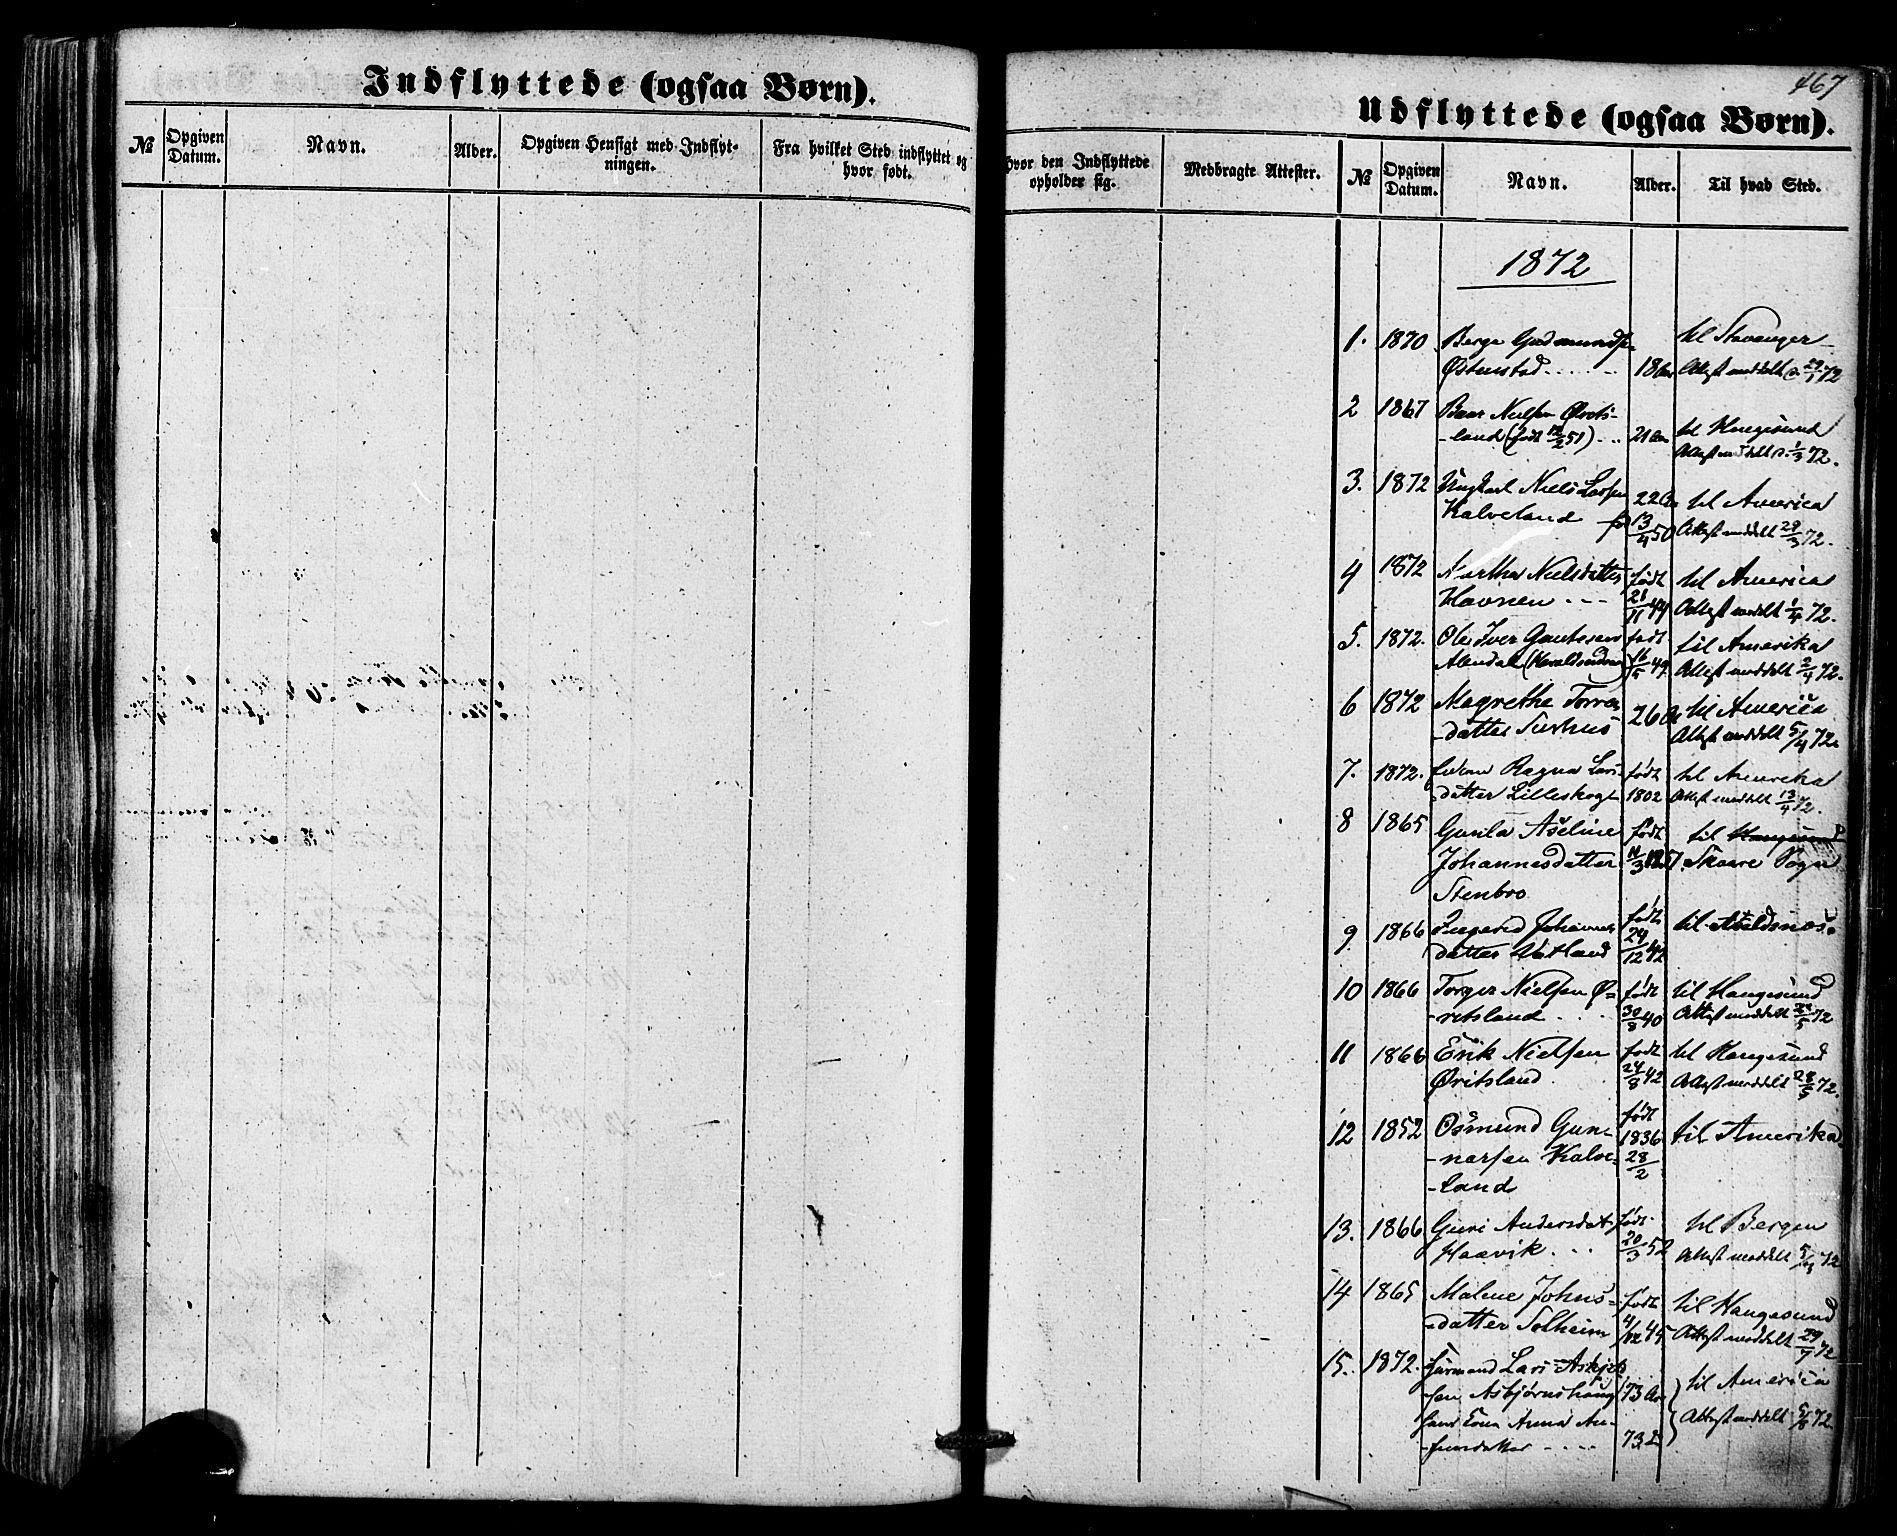 Indflyttede (ogsaa Børn).
№ Opgiven Datum. Navn. Alder. Opgiven Hensigt med Indflyt-
ningen. Fra hvilket Sted indflyttet og
hvor født.
467
Udflyttede (ogsaa Børn).
hvor den Indflyttede
opholder sig. Medbragte Attester. № Opgiven Datum. Navn. Alder. Til hvad Sted.
1872
1. 1870 Berge Gudmunds
Østenstad 18 Aar til Stavanger
Attest meddelt 72
2 1867 Nielsen
-land (født 12/2 51) 21 Aar til Haugesund
Attest meddelt 1/3 72.
3. 1872 Ungkarl Niels Larsen 22 til America
Kalveland 13/4 50 Attest meddelt 29/3 72.
4 1872 Martha Nielsdatter født til America
Havnen 21/11 Attest meddelt 1/4 72.
5. 1872. Ole Iver født til Amerika
Attest meddelt 2/4 72.
6 1872 Magrethe 26 til America
-datter Attest meddelt 5/4 72.
7. 1872. Ragna Lars- født til Amerika
datter Lilleskog 1802 Attest meddelt 13/4 72.
8 1865 Gunla Aseline født til Haugesund
Johannesdatter 11/3 Skaare Sogn
Stenbro
9 1866 Johannes født til
datter 24/12 42
10 1866 Torger Nielsen Ø= født til Haugesund
-ritsland 30/8 40 Attest meddelt 72
11 1866 Erik Nielsen født til Haugesund
Øritsland. 24/8 42 Attest meddelt 28/5 72.
12 1852 Osmund Gun- født til Amerika
-narsen Kalve- 1836 28/2
-land
13. 1866 Guri Andersdat født til Bergen
Haavik 20/3 52 Attest meddelt 72
14 1865 Malene Johns- født til Haugesund
=datter Solheim 4/12 45 Attest meddelt 29/7 72
15. 1872. Lars
-sen Asbjørnshaug 73 Aar til America
hans Kone Anna 73 Attest meddelt 5/8 72